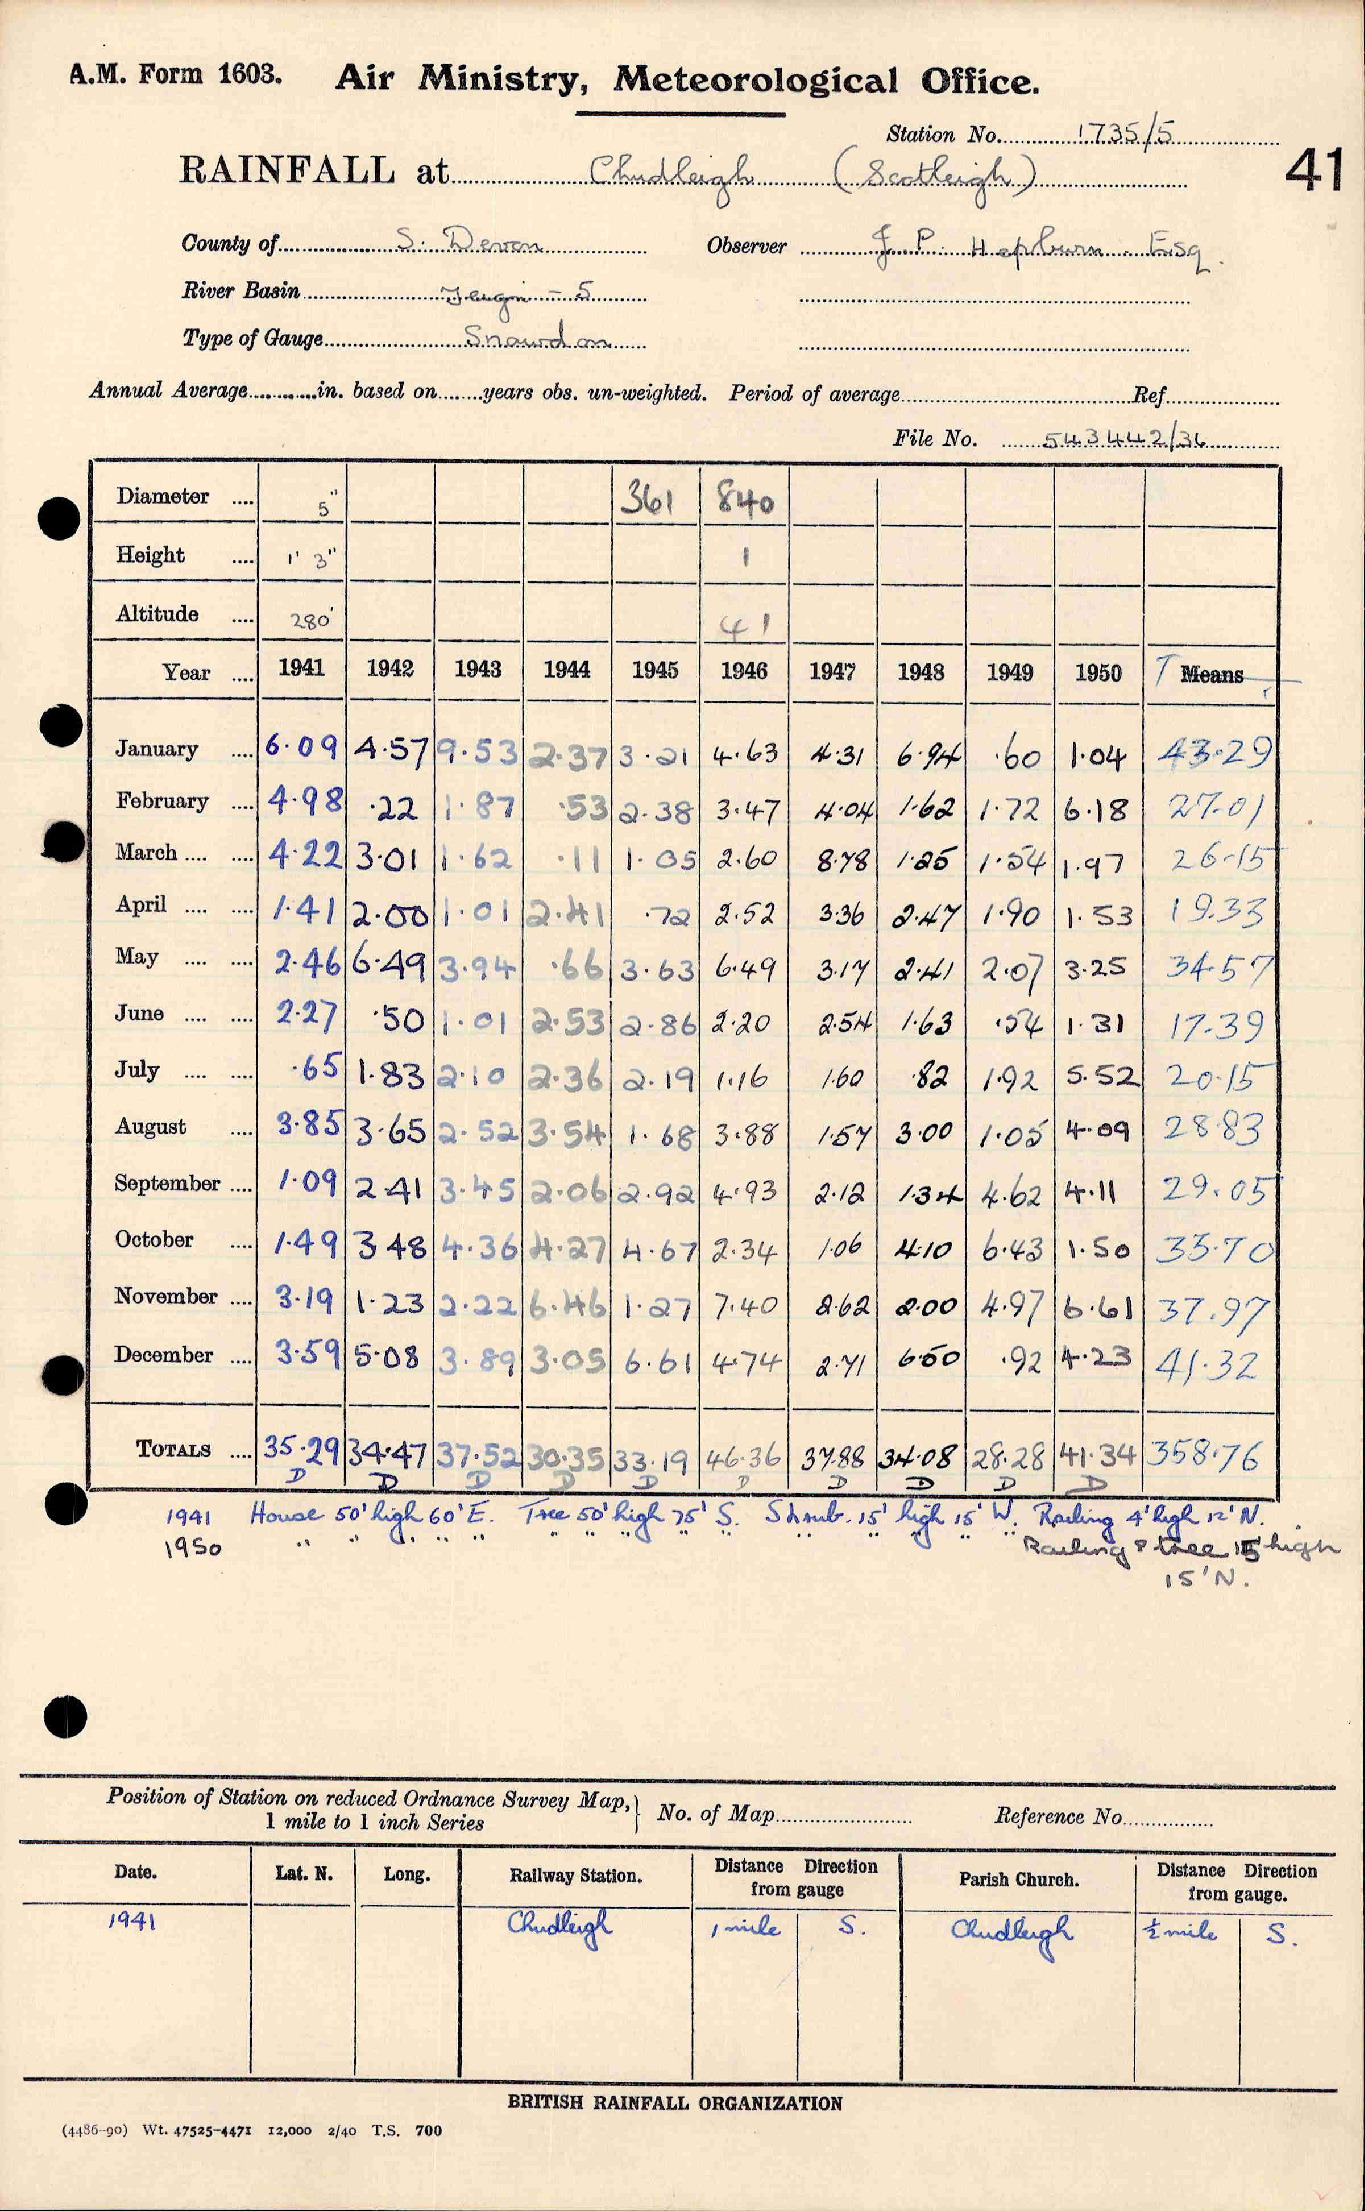 A.M. Form 1603. Air Ministry, Meteorological Office.
Station No. 1735/5
RAINFALL at Chudleigh (Scotleigh)
41
County of S. Devon Observer J. P. Hepburn Esq.
River Basin Teign - 5
Type of Gauge Snowdon
Annual Average in. based on years obs. un-weighted. Period of average Ref
File No. 543442/36
Diameter 5" 361 840
Height 1' 3" 1
Altitude 280' 41
Year 1941 1942 1943 1944 1945 1946 1947 1948 1949 1950 T Means
January 6.09 4.57 9.53 2.37 3.21 4.63 4.31 6.94 .60 1.04 43.29
February 4.98 .22 1.87 .53 2.38 3.47 4.04 1.62 1.72 6.18 27.01
March 4.22 3.01 1.62 .11 1.05 2.60 8.78 1.25 1.54 1.97 26.15
April 1.41 2.00 1.01 2.41 .72 2.52 3.36 2.47 1.90 1.53 19.33
May 2.46 6.49 3.94 .66 3.63 6.49 3.17 2.41 2.07 3.25 34.57
June 2.27 .50 1.01 2.53 2.86 2.20 2.54 1.63 .54 1.31 17.39
July .65 1.83 2.10 2.36 2.19 1.16 1.60 .82 1.92 5.52 20.15
August 3.85 3.65 2.52 3.54 1.68 3.88 1.57 3.00 1.05 4.09 28.83
September 1.09 2.41 3.45 2.06 2.92 4.93 2.12 1.34 4.62 4.11 29.05
October 1.49 3.48 4.36 4.27 4.67 2.34 1.06 4.10 6.43 1.50 33.70
November 3.19 1.23 2.22 6.46 1.27 7.40 2.62 2.00 4.97 6.61 37.97
December 3.59 5.08 3.89 3.05 6.61 4.74 2.71 6.50 .92 4.23 41.32
TOTALS 35.29 34.47 37.52 30.35 33.19 46.36 37.88 34.08 28.28 41.34 358.76
D D D D D D D D D D
1941 House 50' high 60' E. Tree 50' high 75' S. Shrub 15' high 15' W. Railing 4' high 12' N.
1950 " " " " " " " " " " " " Railing & tree 15' high
15' N.
Position of Station on reduced Ordnance Survey Map, No. of Map Reference No.
1 mile to 1 inch Series
Date. Lat. N. Long. Railway Station. Distance Direction from gauge Parish Church. Distance Direction from gauge.
1941 Chudleigh 1 mile S. Chudleigh ½ mile S.
BRITISH RAINFALL ORGANIZATION
(4486-90) Wt. 47525-4471 12,000 2/40 T.S. 700